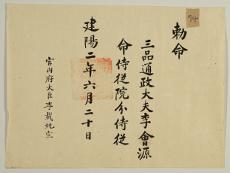 勅命
三品通政大夫李會源
命侍従院分侍従
建陽二年六月二十日
宮内府大臣李載純宣